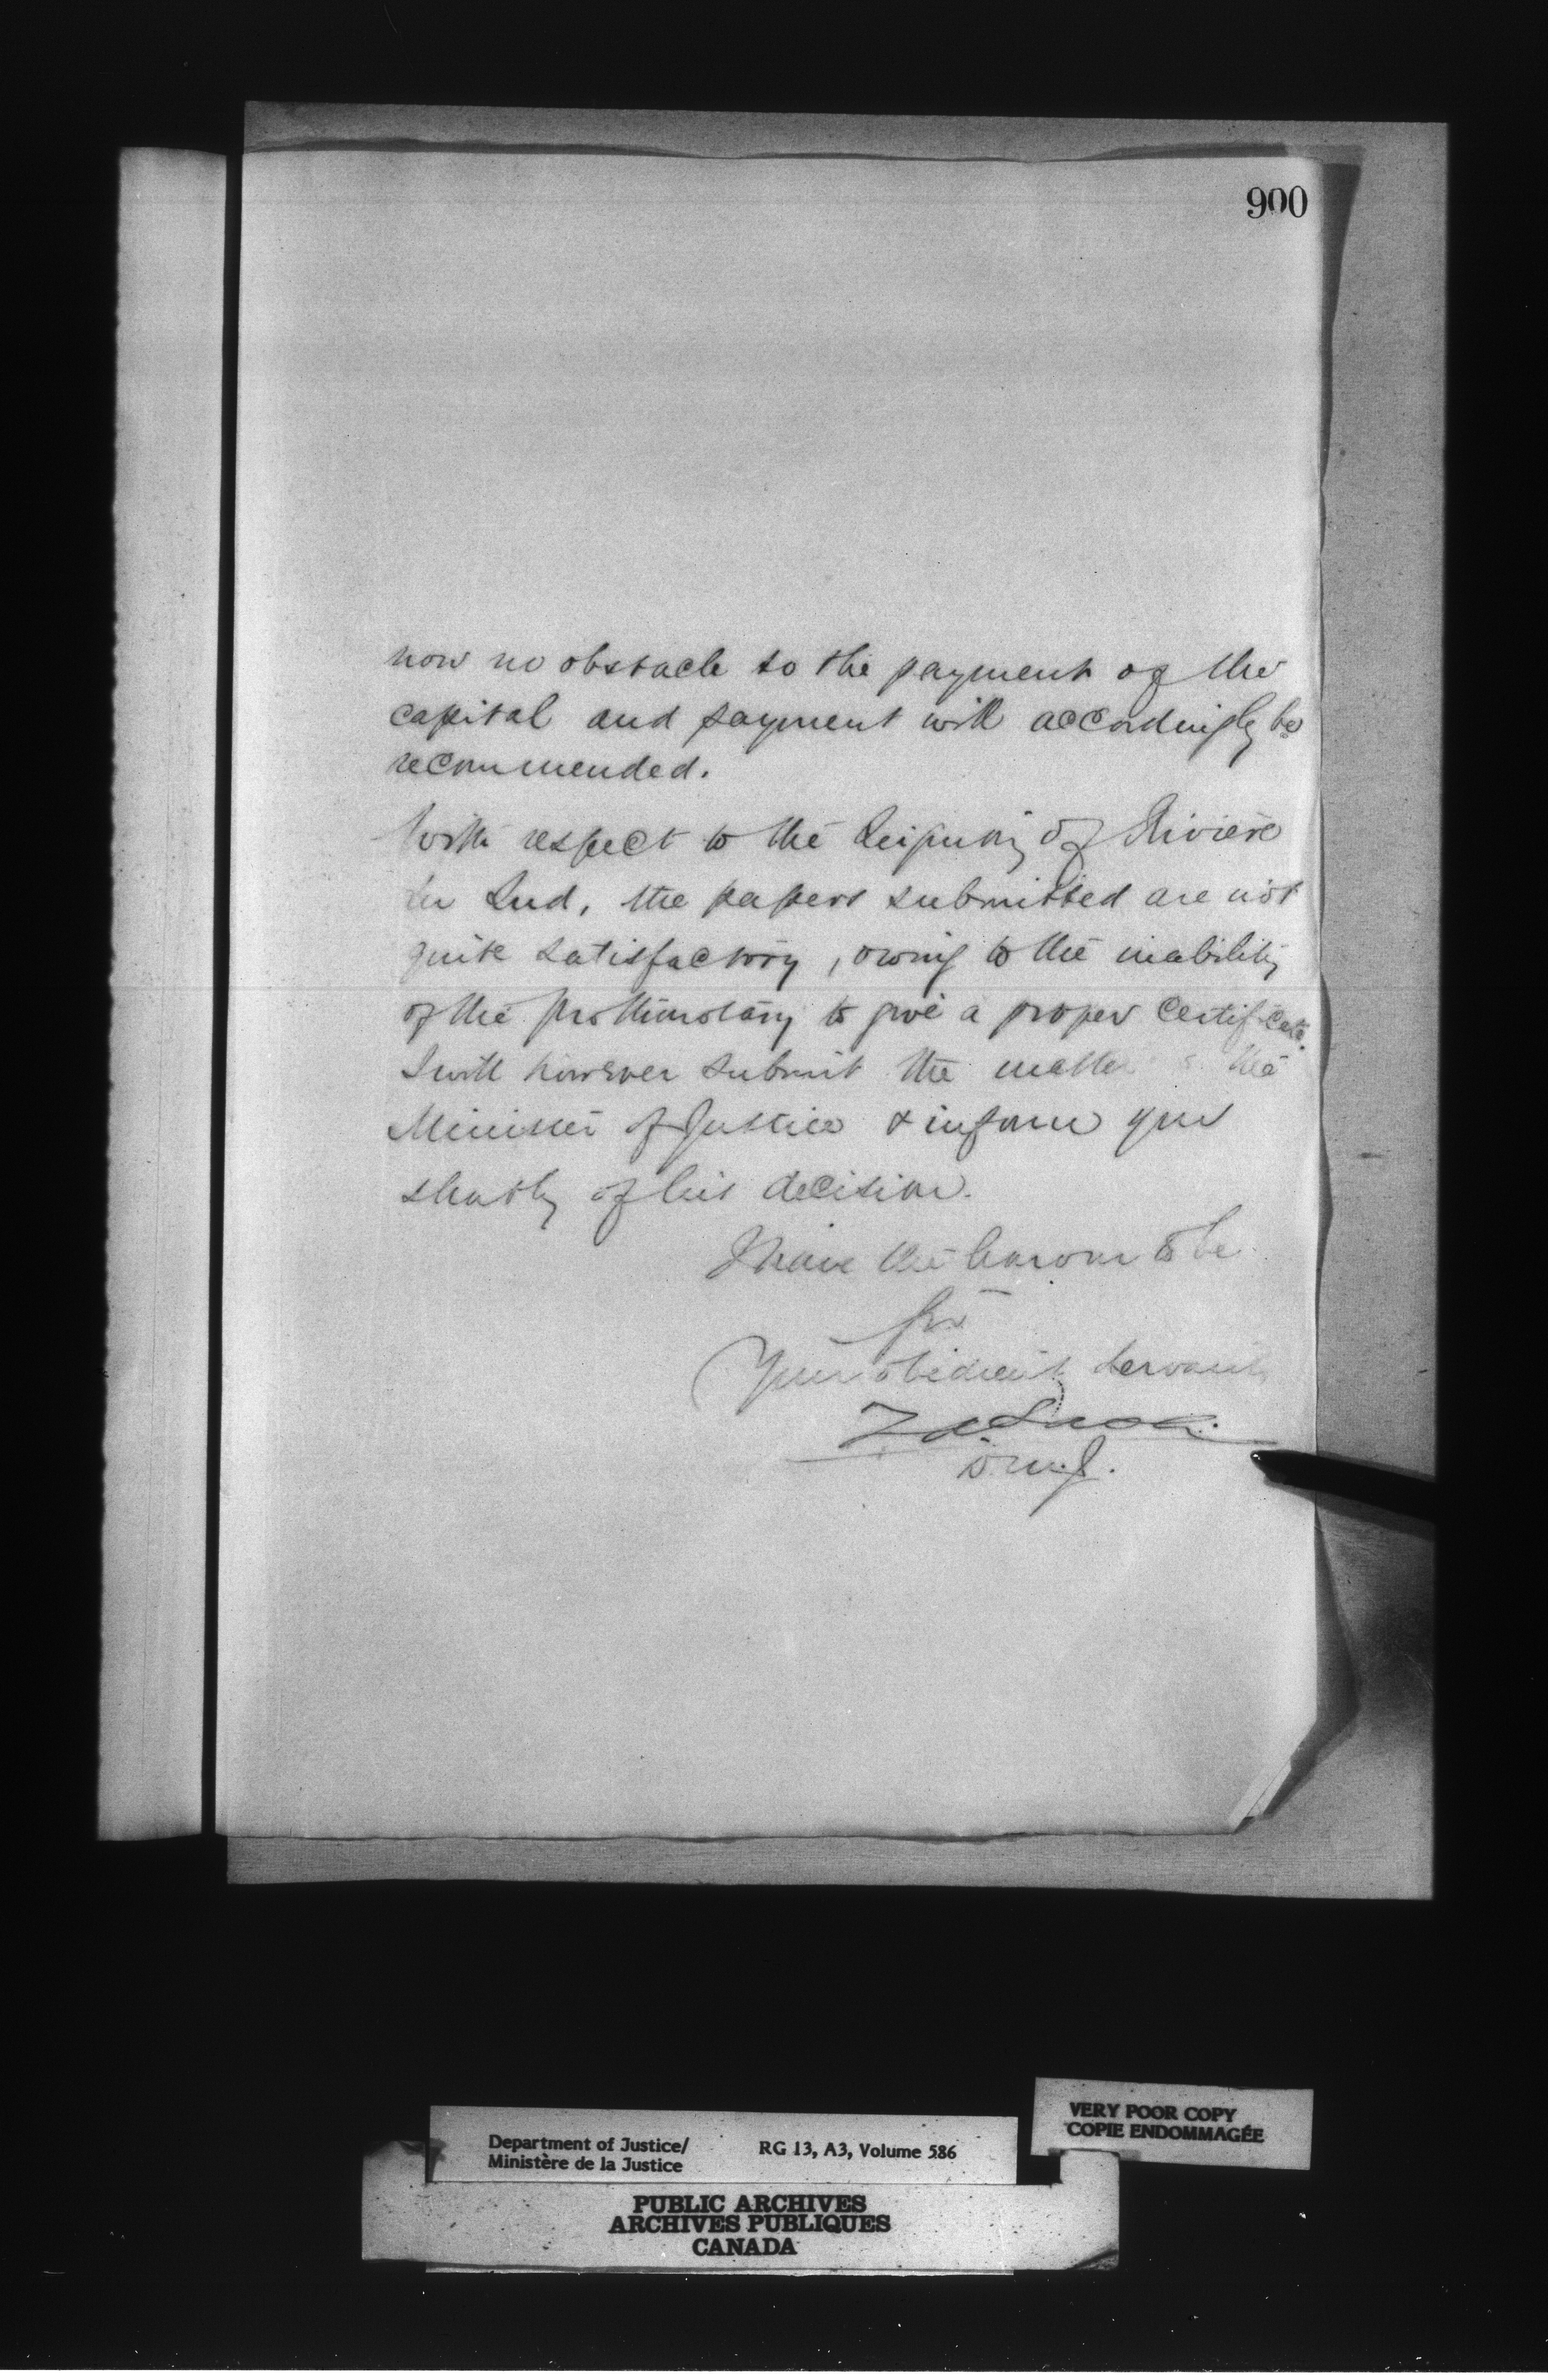 900
now no obstacle to the payment of the
capital and payment will accordingly be
recommended.
With respect to the Seigniory of Rivière
du Sud, the papers submitted are not
quite satisfactory, owing to the inability
of the Prothonotary to give a proper certificate.
I will however submit the matter the
Minister of Justice & inform you
shortly of his decision.
I have the honour to be
Sir
Your obedient servant
D.M.J.
VERY POOR COPY
COPIE ENDOMMAGÉE
Department of Justice/ RG 13, A3, Volume 586
Ministère de la Justice
PUBLIC ARCHIVES
ARCHIVES PUBLIQUES
CANADA